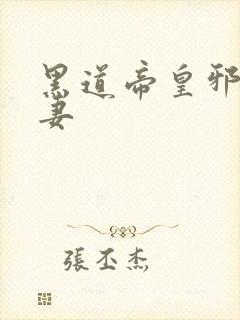 黑道帝皇邪
妻
張丕杰